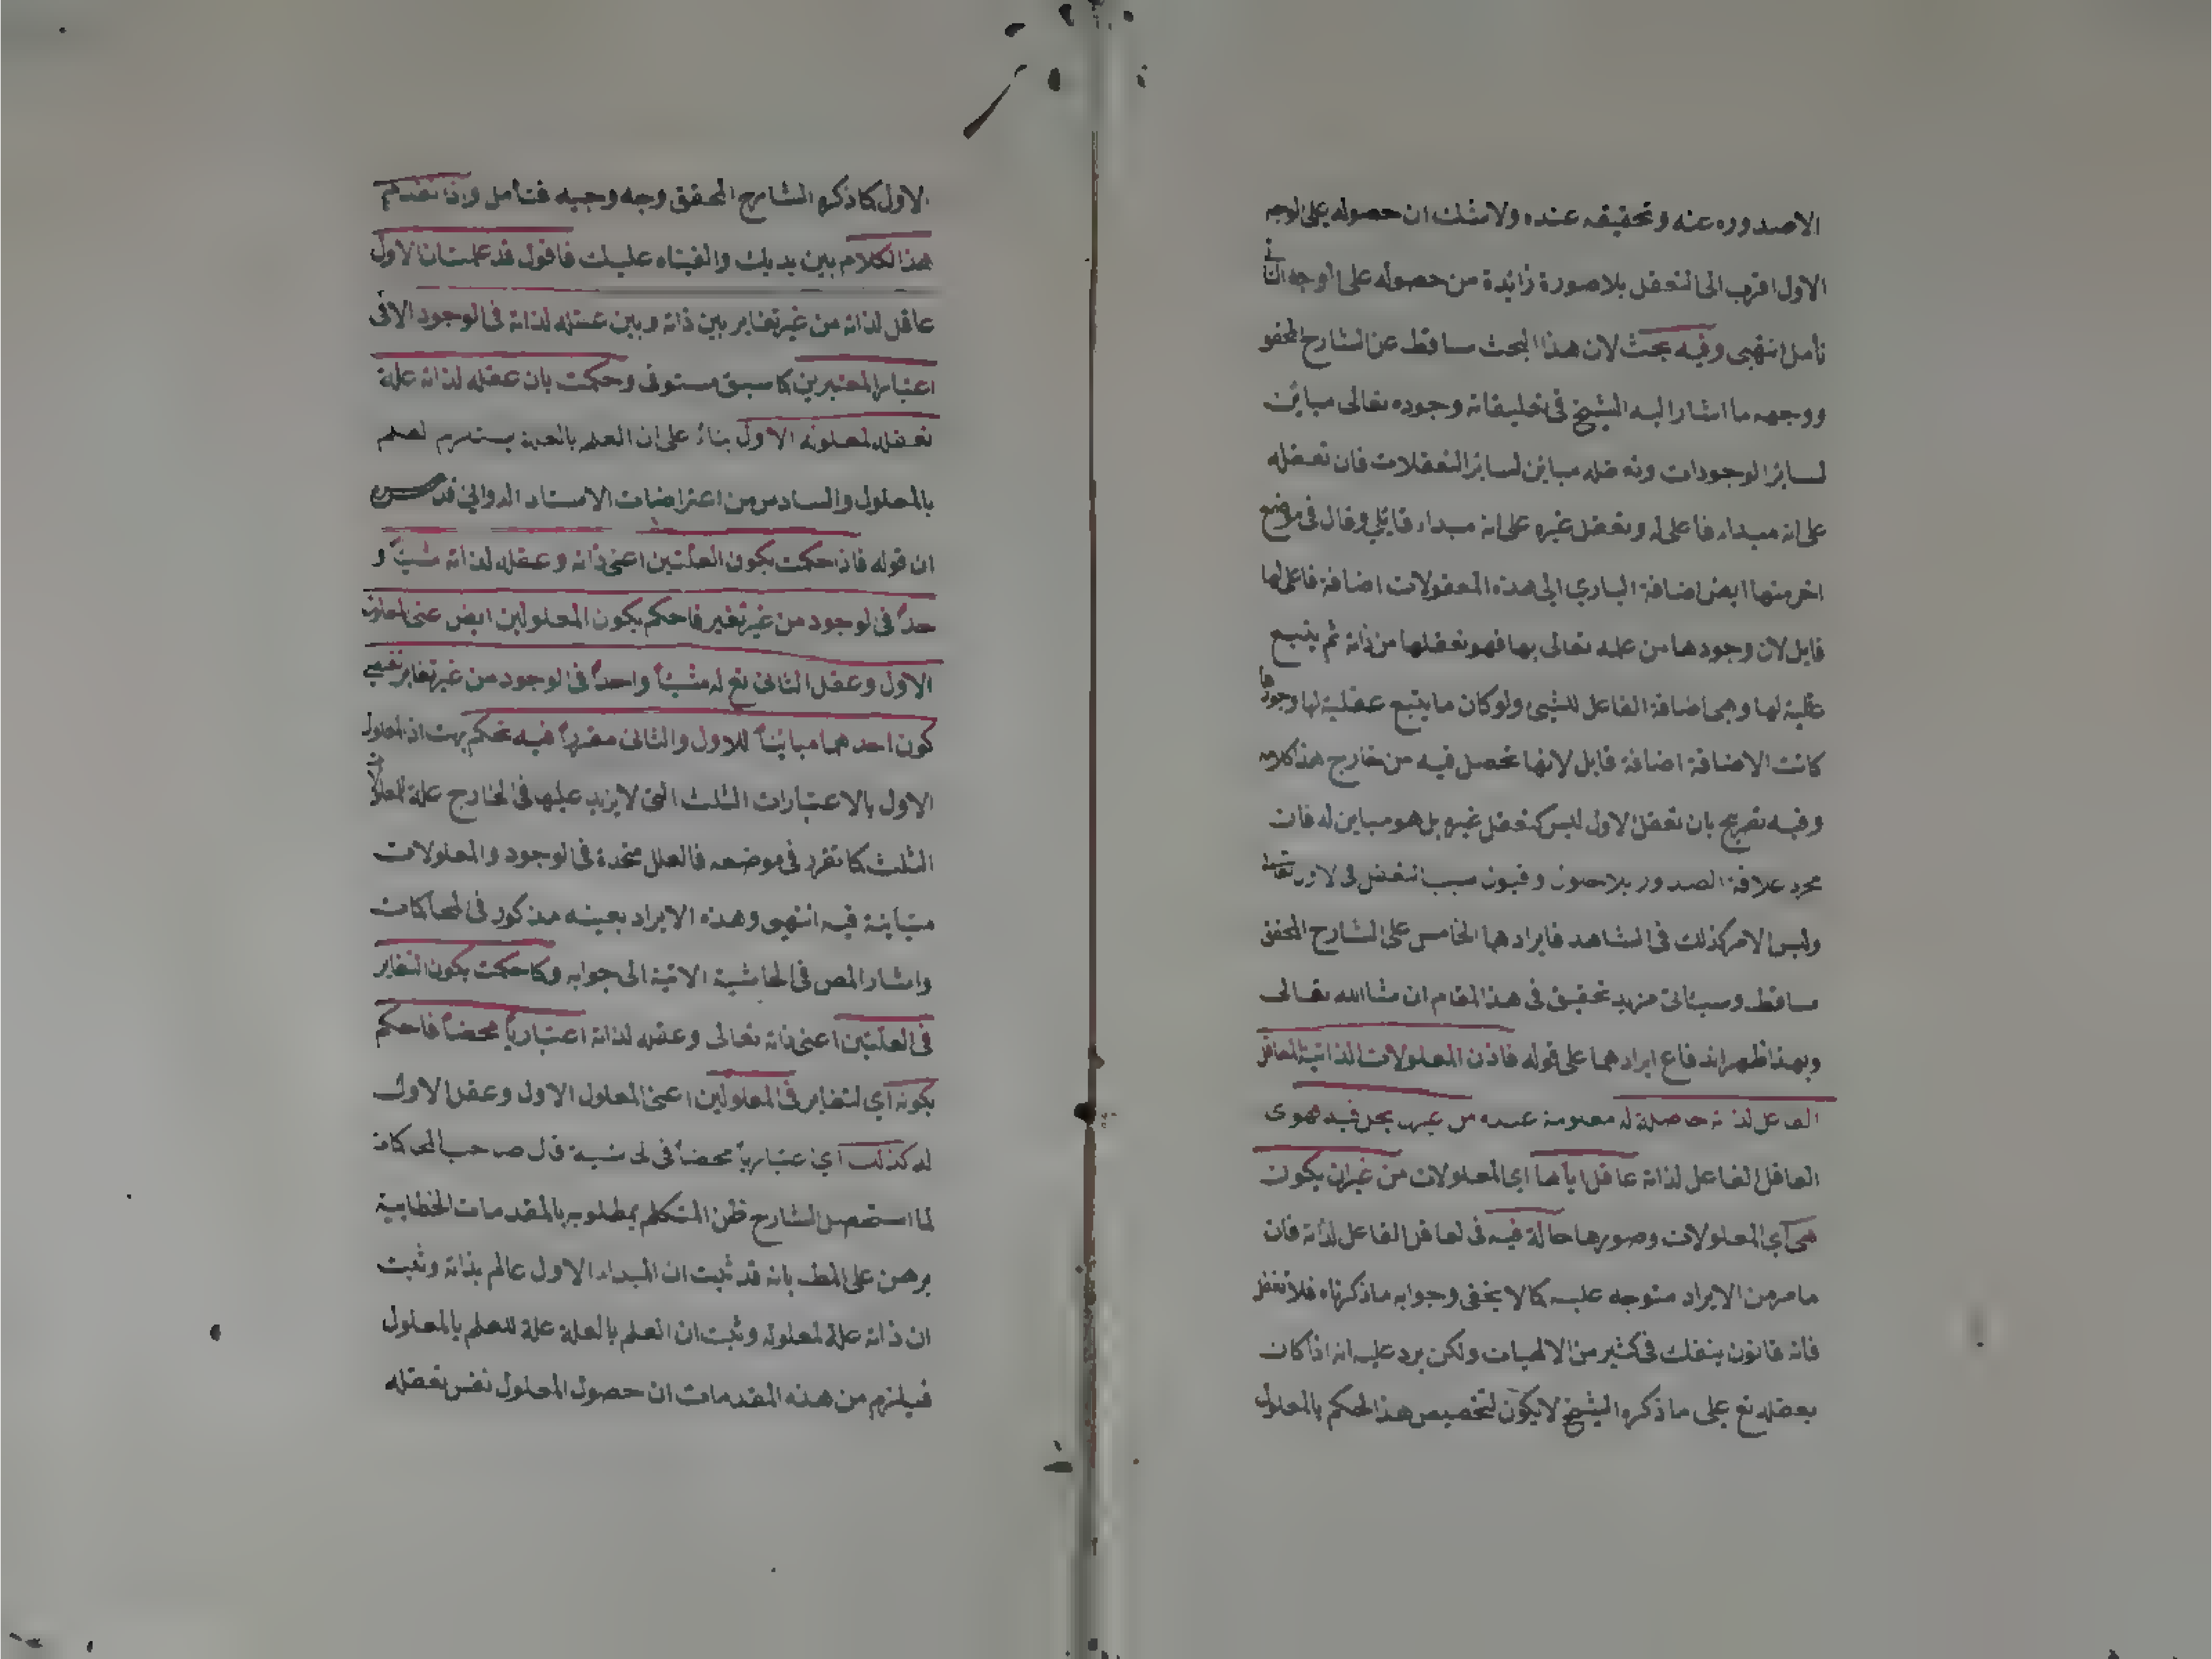 الاصدوره عنه وتحقيقه عنده ولاشك ان حصوله على الوجه
الاول اقرب الى التعقل بلا صورة زايدة من حصوله على الوجه الثاني
تأمل انتهى وفيه بحث لان هذا البحث ساقط عن الشارح المحقق
ووجهه ما اشار اليه الشيخ فى تعليقاته وجوده تعالى مباين
لساير الوجودات وتعقله مباين لساير التعقلات فان تعقله
على انه مبداء فاعلى له وتعقل غيره على انه مبداء قابلي وقال فى موضع
اخر منها ايض اضافة الباري الى هذه المعقولات اضافة فاعل لها
قابل لان وجودها من علمه تعالى بها فهو تعقلها من ذاته ثم يتبع
عقلية لها وهى اضافة الفاعل للشيئ ولو كان ما يتبع عقلية لها وجودها
كانت الاضافة اضافة قابل لانها تحصل فيه من خارج هذا كلامه
وفيه تصريح بان تعقل الاول ليس كتعقل غيره بل هو مباين له فان
مجرد علاقة الصدور بلا حلول وقبول سبب التعقل فى الاول تعالى
وليس الامر كذلك فى الشاهد فايرادها الخامس على الشارح المحقق
ساقط وسيأتى مزيد تحقيق فى هذا المقام ان شاالله تعالى
وبهذا ظهر اندفاع ايرادها على قوله فاذن المعلولات الذاتية للعاقل
الفاعل لذاته حاصلة له معلومة عنده من غير يحل فيه فهو اى
العاقل الفاعل لذاته عاقل اياها اي المعلولات من غير ان يكون
هى اي المعلولات وصورها حالة فيه فى العاقل الفاعل لذاته فان
ما مر من الايراد متوجه عليه كما لا يخفى وجوابه ما ذكرناه فلا تغفل
فانه قانون ينفعك فى كثير من الالهيات ولكن يرد عليه انه اذا كان
تعقله تع على ما ذكره الشيخ لا يكون لتخصيص هذا الحكم بالمعلول
الاول كما ذكره الشارح المحقق وجه وجيه فتأمل واذا تقدم
هذا الكلام بين يديك والقيناه عليك فاقول قد علمت ان الاول
عاقل لذاته من غير تغاير بين ذاته وبين عقله لذاته فى الوجود الا فى
اعتبار المعتبرين كما سبق مستوفى وحكمت بان عقله لذاته علة
تعقله لمعلوله الاول بناءً على ان العلم بالعلة يستلزم العلم
بالمعلول والسادس من اعتراضات الاستاد الدواني قدس سره
ان قوله فاذا حكمت بكون العلتين اعنى ذاته وعقله لذاته شيئاً و
حداً فى الوجود من غير تغير فاحكم بكون المعلولين ايض عنى المعلول
الاول وعقل الثانى تع له شيئاً واحداً فى الوجود من غير تغاير يقتضي
كون احدهما مبايناً للاول والثانى مقرراً فيه تحكم بهت اذ المعلول
الاول بالاعتبارات الثلث التى لا يزيد عليها فى الخارج علة للمعلولات
الثلث كما تقرر فى موضعه فالعلل متحدة فى الوجود والمعلولات
متباينة فيه انتهى وهذه الايراد بعينه مذكور فى المحاكمات
واشار المص فى الحاشية الاتية الى جوابه وكما حكمت بكون التغاير
فى العلتين اعنى ذاته تعالى وعقله لذاته اعتبارياً محضاً فاحكم
بكونه اي التغاير فى المعلولين اعنى المعلول الاول وعقل الاول
له كذلك اي اعتبارياً محضاً فى الحاشية قال صاحب المحاكمات
لما استشعر الشارح ظن المتكلم بمطلوبه بالمقدمات الخطابية
برهن على المط بانه قد ثبت ان المبداء الاول عالم بذاته وثبت
ان ذاته علة لمعلوله وثبت ان العلم بالعلة علة للعلم بالمعلول
فيلزم من هذه المقدمات ان حصول المعلول نفس تعقله